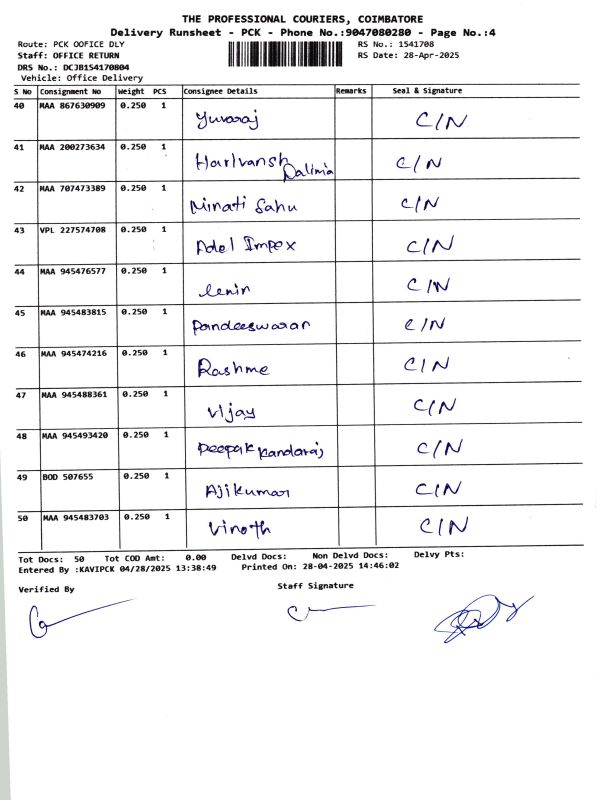 THE PROFESSIONAL COURIERS, COIMBATORE
Delivery Runsheet - PCK - Phone No.:9047080280 - Page No.:4
Route: PCK OOFICE DLY RS No.: 1541708
Staff: OFFICE RETURN RS Date: 28-Apr-2025
DRS No.: DCJB154170804
Vehicle: Office Delivery
S No Consignment No Weight PCS Consignee Details Remarks Seal & Signature
40 MAA 867630909 0.250 1 Yuvaraj C/N
41 MAA 200273634 0.250 1 Harivansh Dalimia C/N
42 MAA 707473389 0.250 1 Minati Sahu C/N
43 VPL 227574708 0.250 1 Adel Impex C/N
44 MAA 945476577 0.250 1 lenin C/N
45 MAA 945483815 0.250 1 Pandeeswaran C/N
46 MAA 945474216 0.250 1 Rashme C/N
47 MAA 945488361 0.250 1 Vijay C/N
48 MAA 945493420 0.250 1 Deepak Kandaraj C/N
49 BOD 507655 0.250 1 Ajikumar C/N
50 MAA 945483703 0.250 1 Vinoth C/N
Tot Docs: 50 Tot COD Amt: 0.00 Delvd Docs: Non Delvd Docs: Delvy Pts:
Entered By :KAVIPCK 04/28/2025 13:38:49 Printed On: 28-04-2025 14:46:02
Verified By Staff Signature